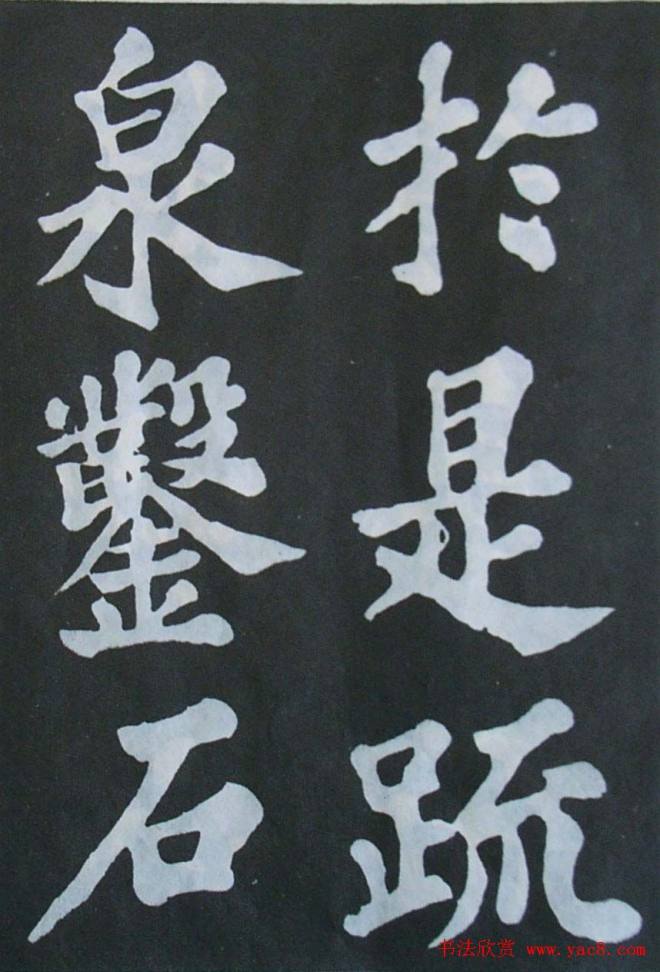 於是疏
泉鑿石
书法欣赏 www.yac8.com